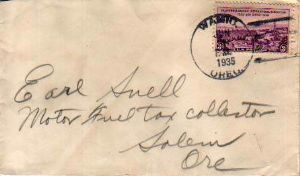 1935
OREG.
Earl Snell
Motor Fuel tax collector
Salem
Ore